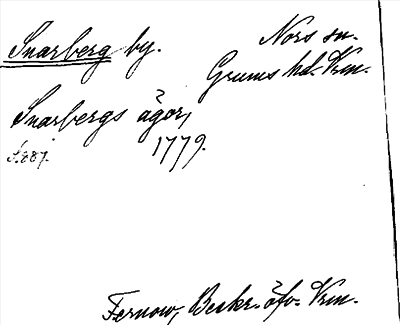 Snarberg by.
Nors sn.
Grums hd. Vrm.
Snarbergs ägor,
1779.
S. 887.
Fernow, Beskr. öfv. Vrm.